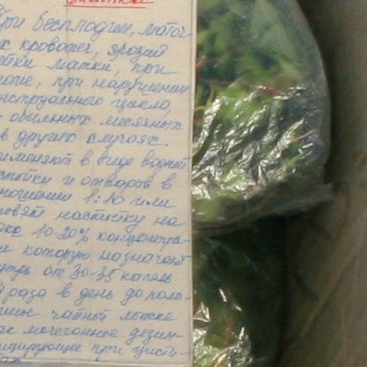 При бесплодии, маточ-
х кровотеч, эрозий
ейки матки, при
при нарушении
менструального цикла,
обильных месячных
в других случаях.
рименяют в виде водной
стойки и отваров в
ношении 1:10 или
товят настойку на
10-20% концентра-
и которую назначают
утрь от 30-35 капель
раза в день до поло-
чайной ложке
ас мочегонное дезин-
ицирующее при цисти-